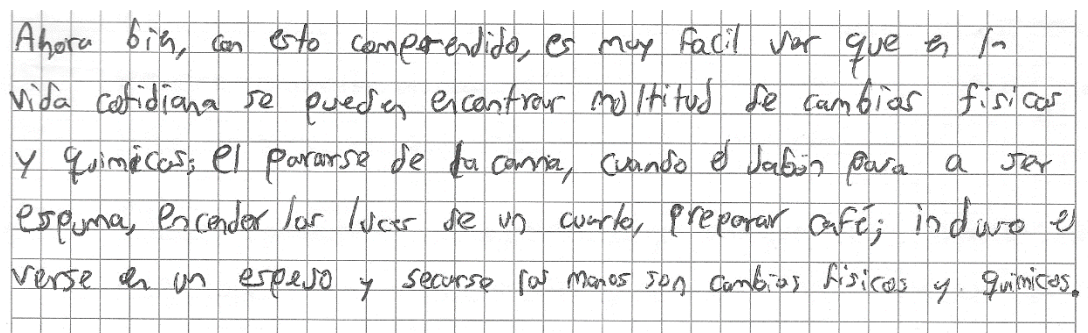 Ahora bien, con esto comprendido, es muy facil ver que en la
vida cotidiana se pueden encontrar moltitud de cambios fisicos
y quimicos; el pararse de la cama, cuando el jabón pasa a ser
espuma, encender las luces de un cuarto, preparar café; incluso el
verse en un espejo y secarse las manos son cambios físicos y quimicos.